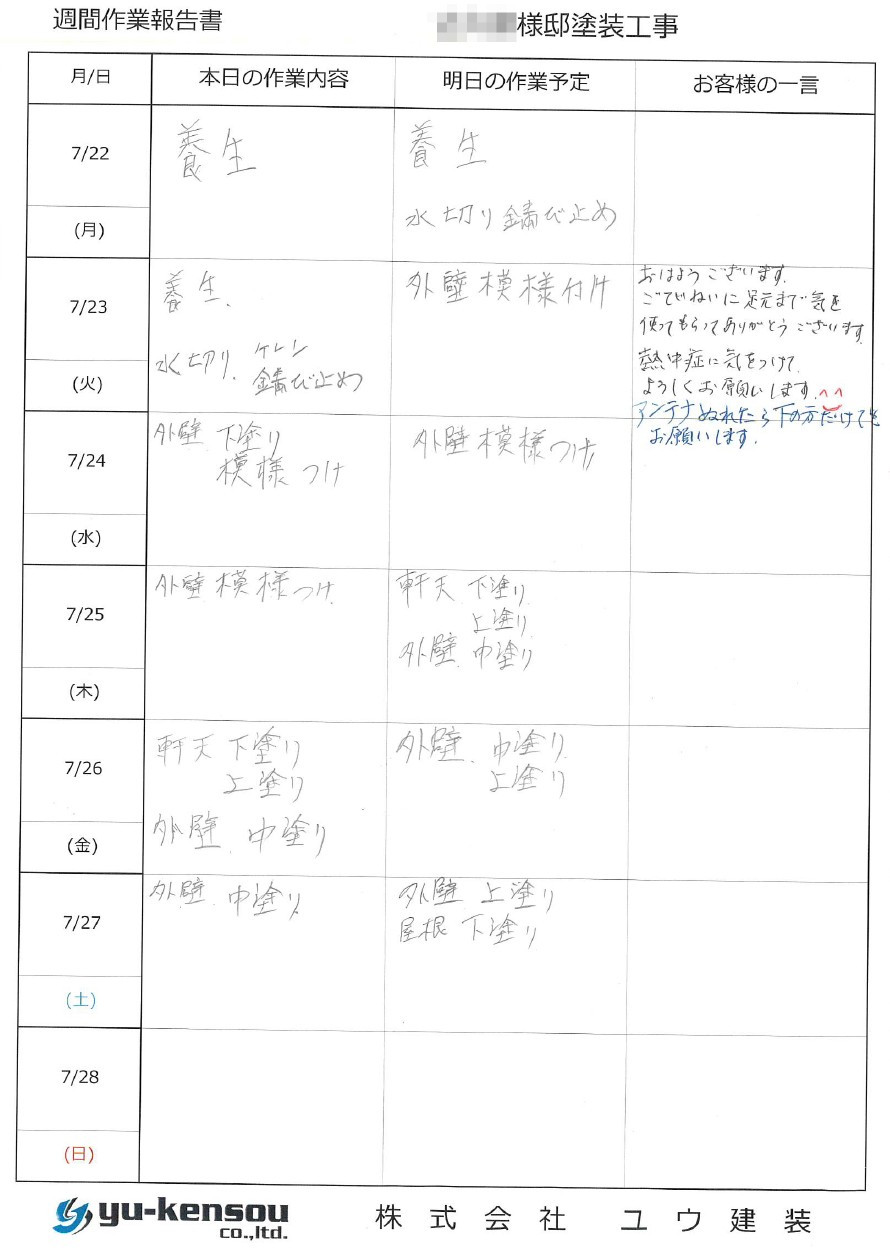 週間作業報告書
様邸塗装工事
月/日 本日の作業内容 明日の作業予定 お客様の一言
7/22
(月)
養生
養生
水切り錆び止め
7/23
(火)
養生.
水切り. ケレン
錆び止め
外壁模様付け
おはようございます.
ごていねいに足元まで気を
使ってもらってありがとうございます.
熱中症に気をつけて.
よろしくお願いします.^^
アンテナぬれたら下の方だけでも
お願いします.
7/24
(水)
外壁 下塗り
模様つけ
外壁模様つけ
7/25
(木)
外壁模様つけ
軒天 下塗り
上塗り
外壁 中塗り
7/26
(金)
軒天 下塗り
上塗り
外壁 中塗り
外壁. 中塗り
上塗り
7/27
(土)
外壁 中塗り
外壁 上塗り
屋根 下塗り
7/28
(日)
yu-kensou
co.,ltd.
株式会社 ユウ建装